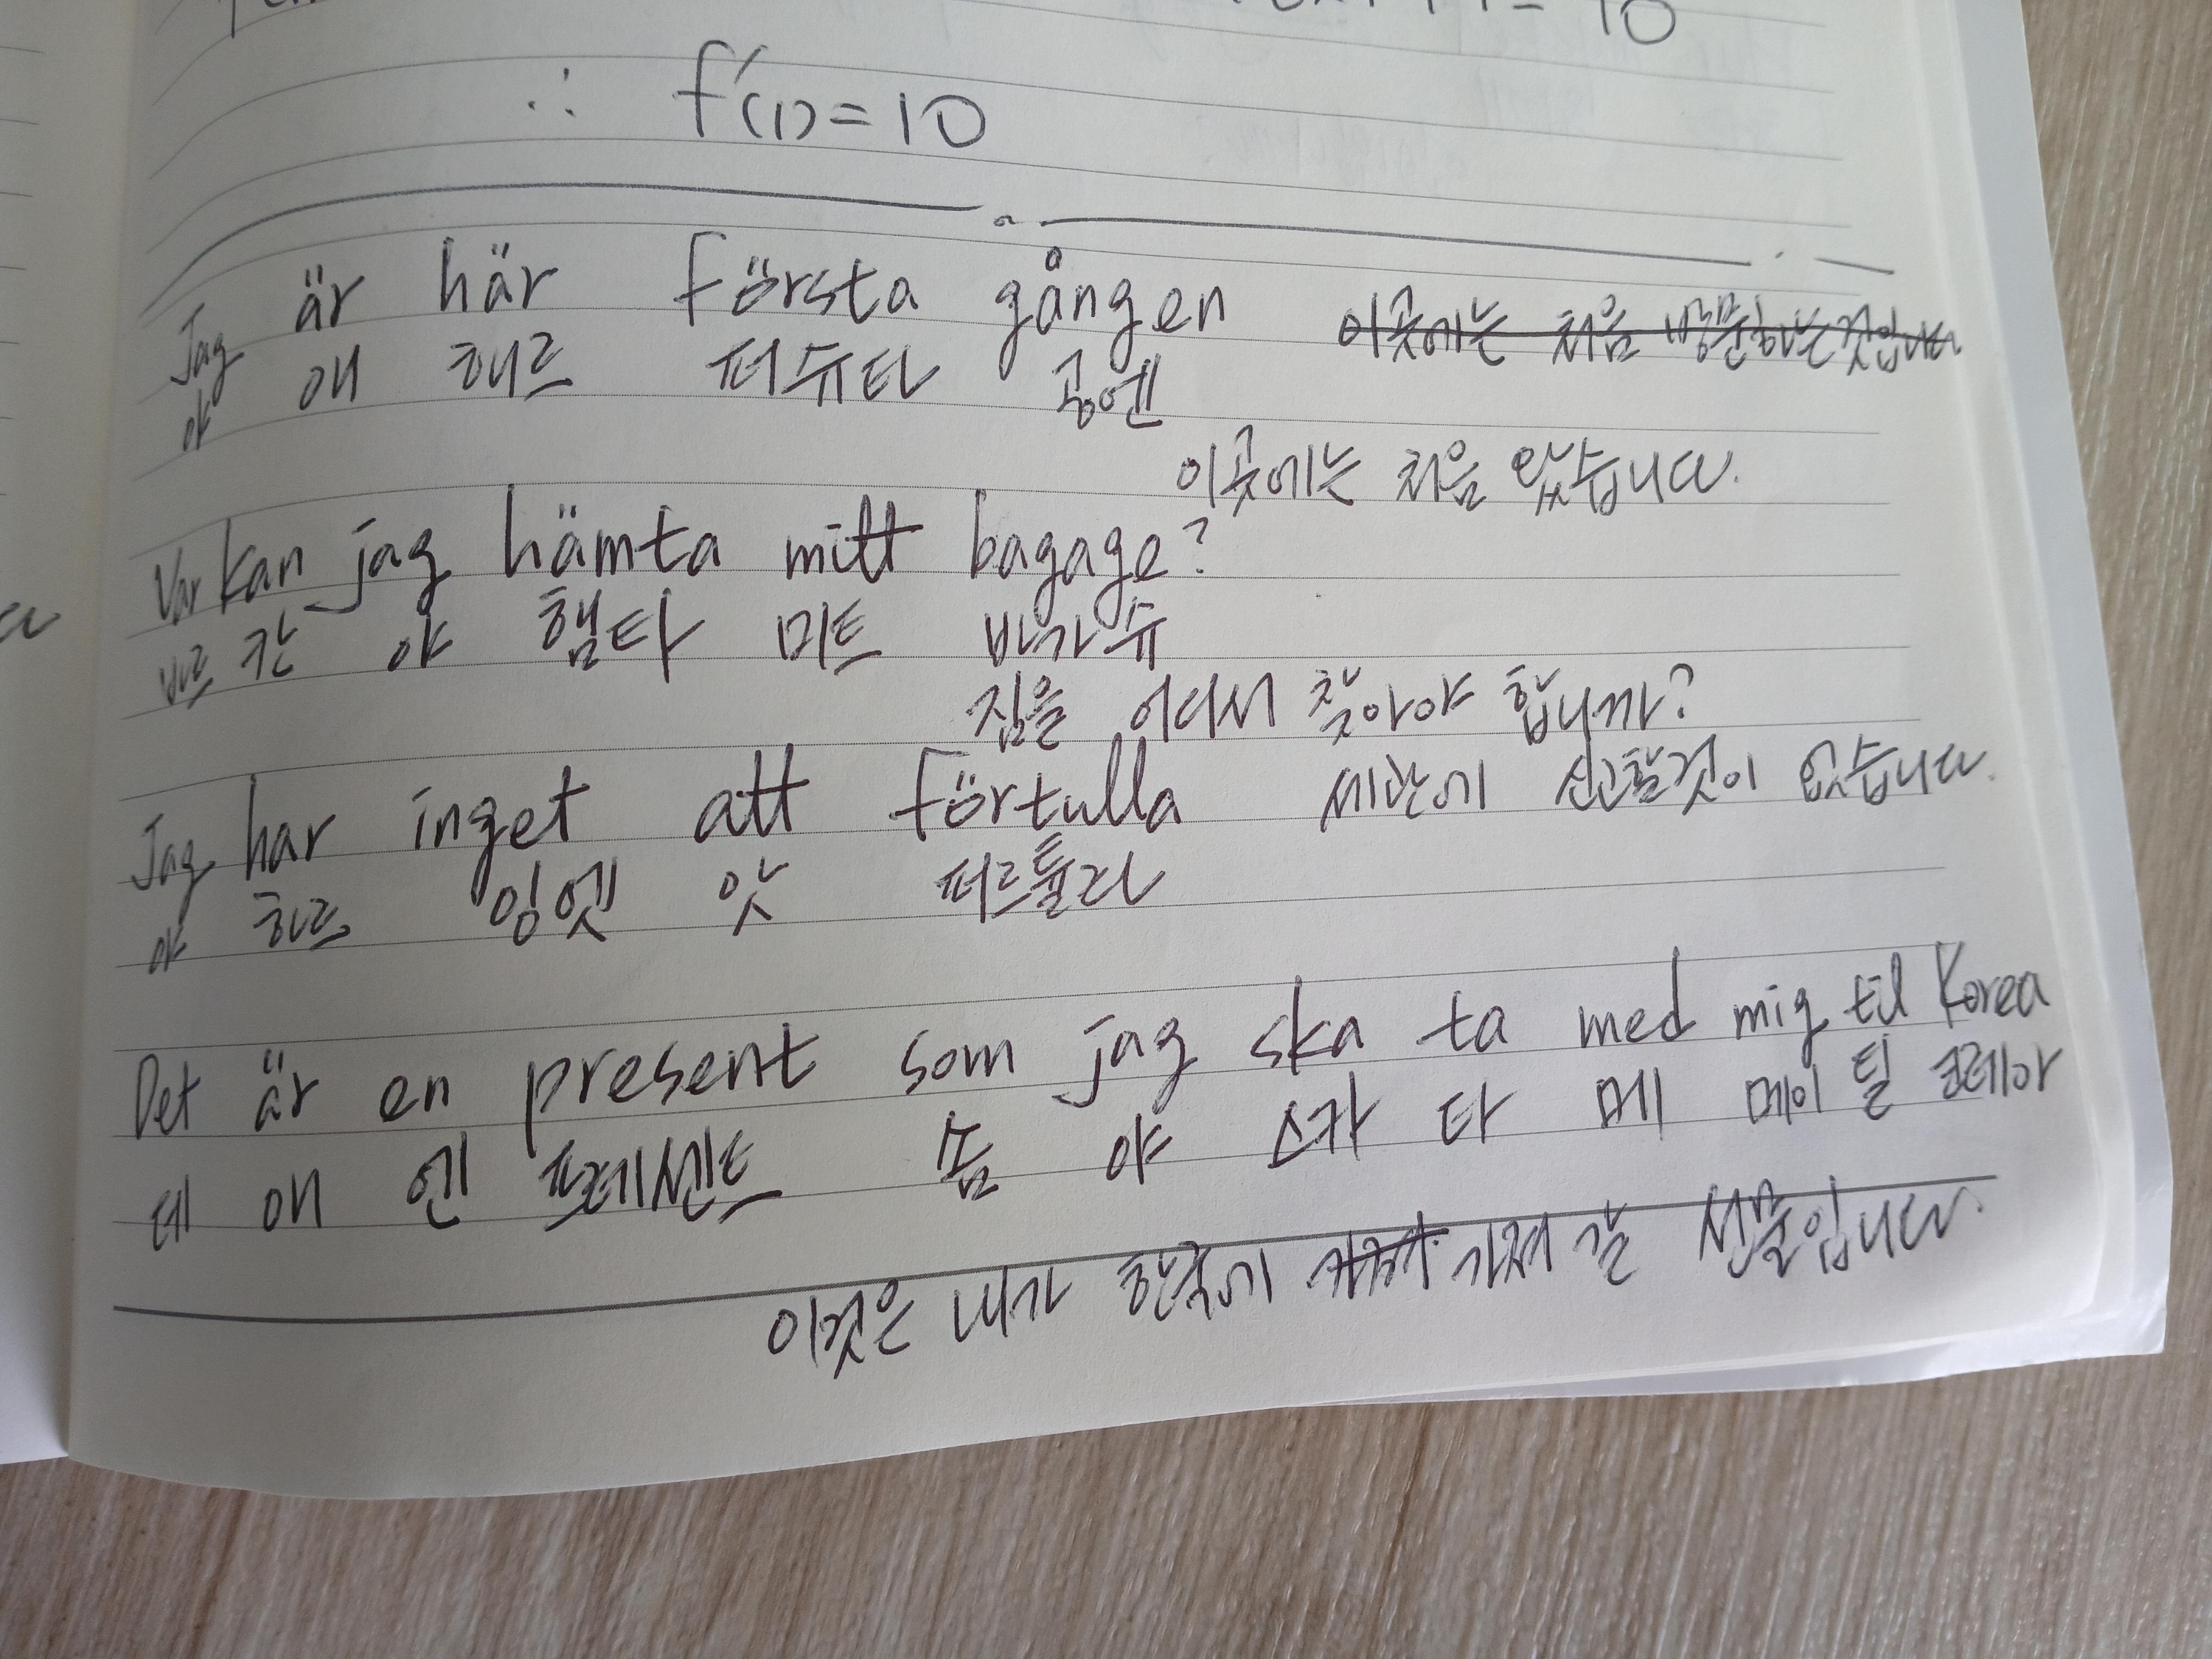 = 10
∴ f'(1)=10
Jag är här första gången 이곳에는 처음 방문하는 것입니다
야 애 해르 퍼슈타 공엔
이곳에는 처음 왔습니다.
Var kan jag hämta mitt bagage?
바르 칸 야 햄타 미트 바가슈
짐을 어디서 찾아야 합니까?
Jag har inget att förtulla 세관에 신고할것이 없습니다.
야 하르 잉엣 앗 퍼르툴라
Det är en present som jag ska ta med mig til Korea
데 애 엔 프레센트 솜 야 스카 타 메 메이 틸 코레아
이것은 내가 한국에 가져 갈 선물입니다.